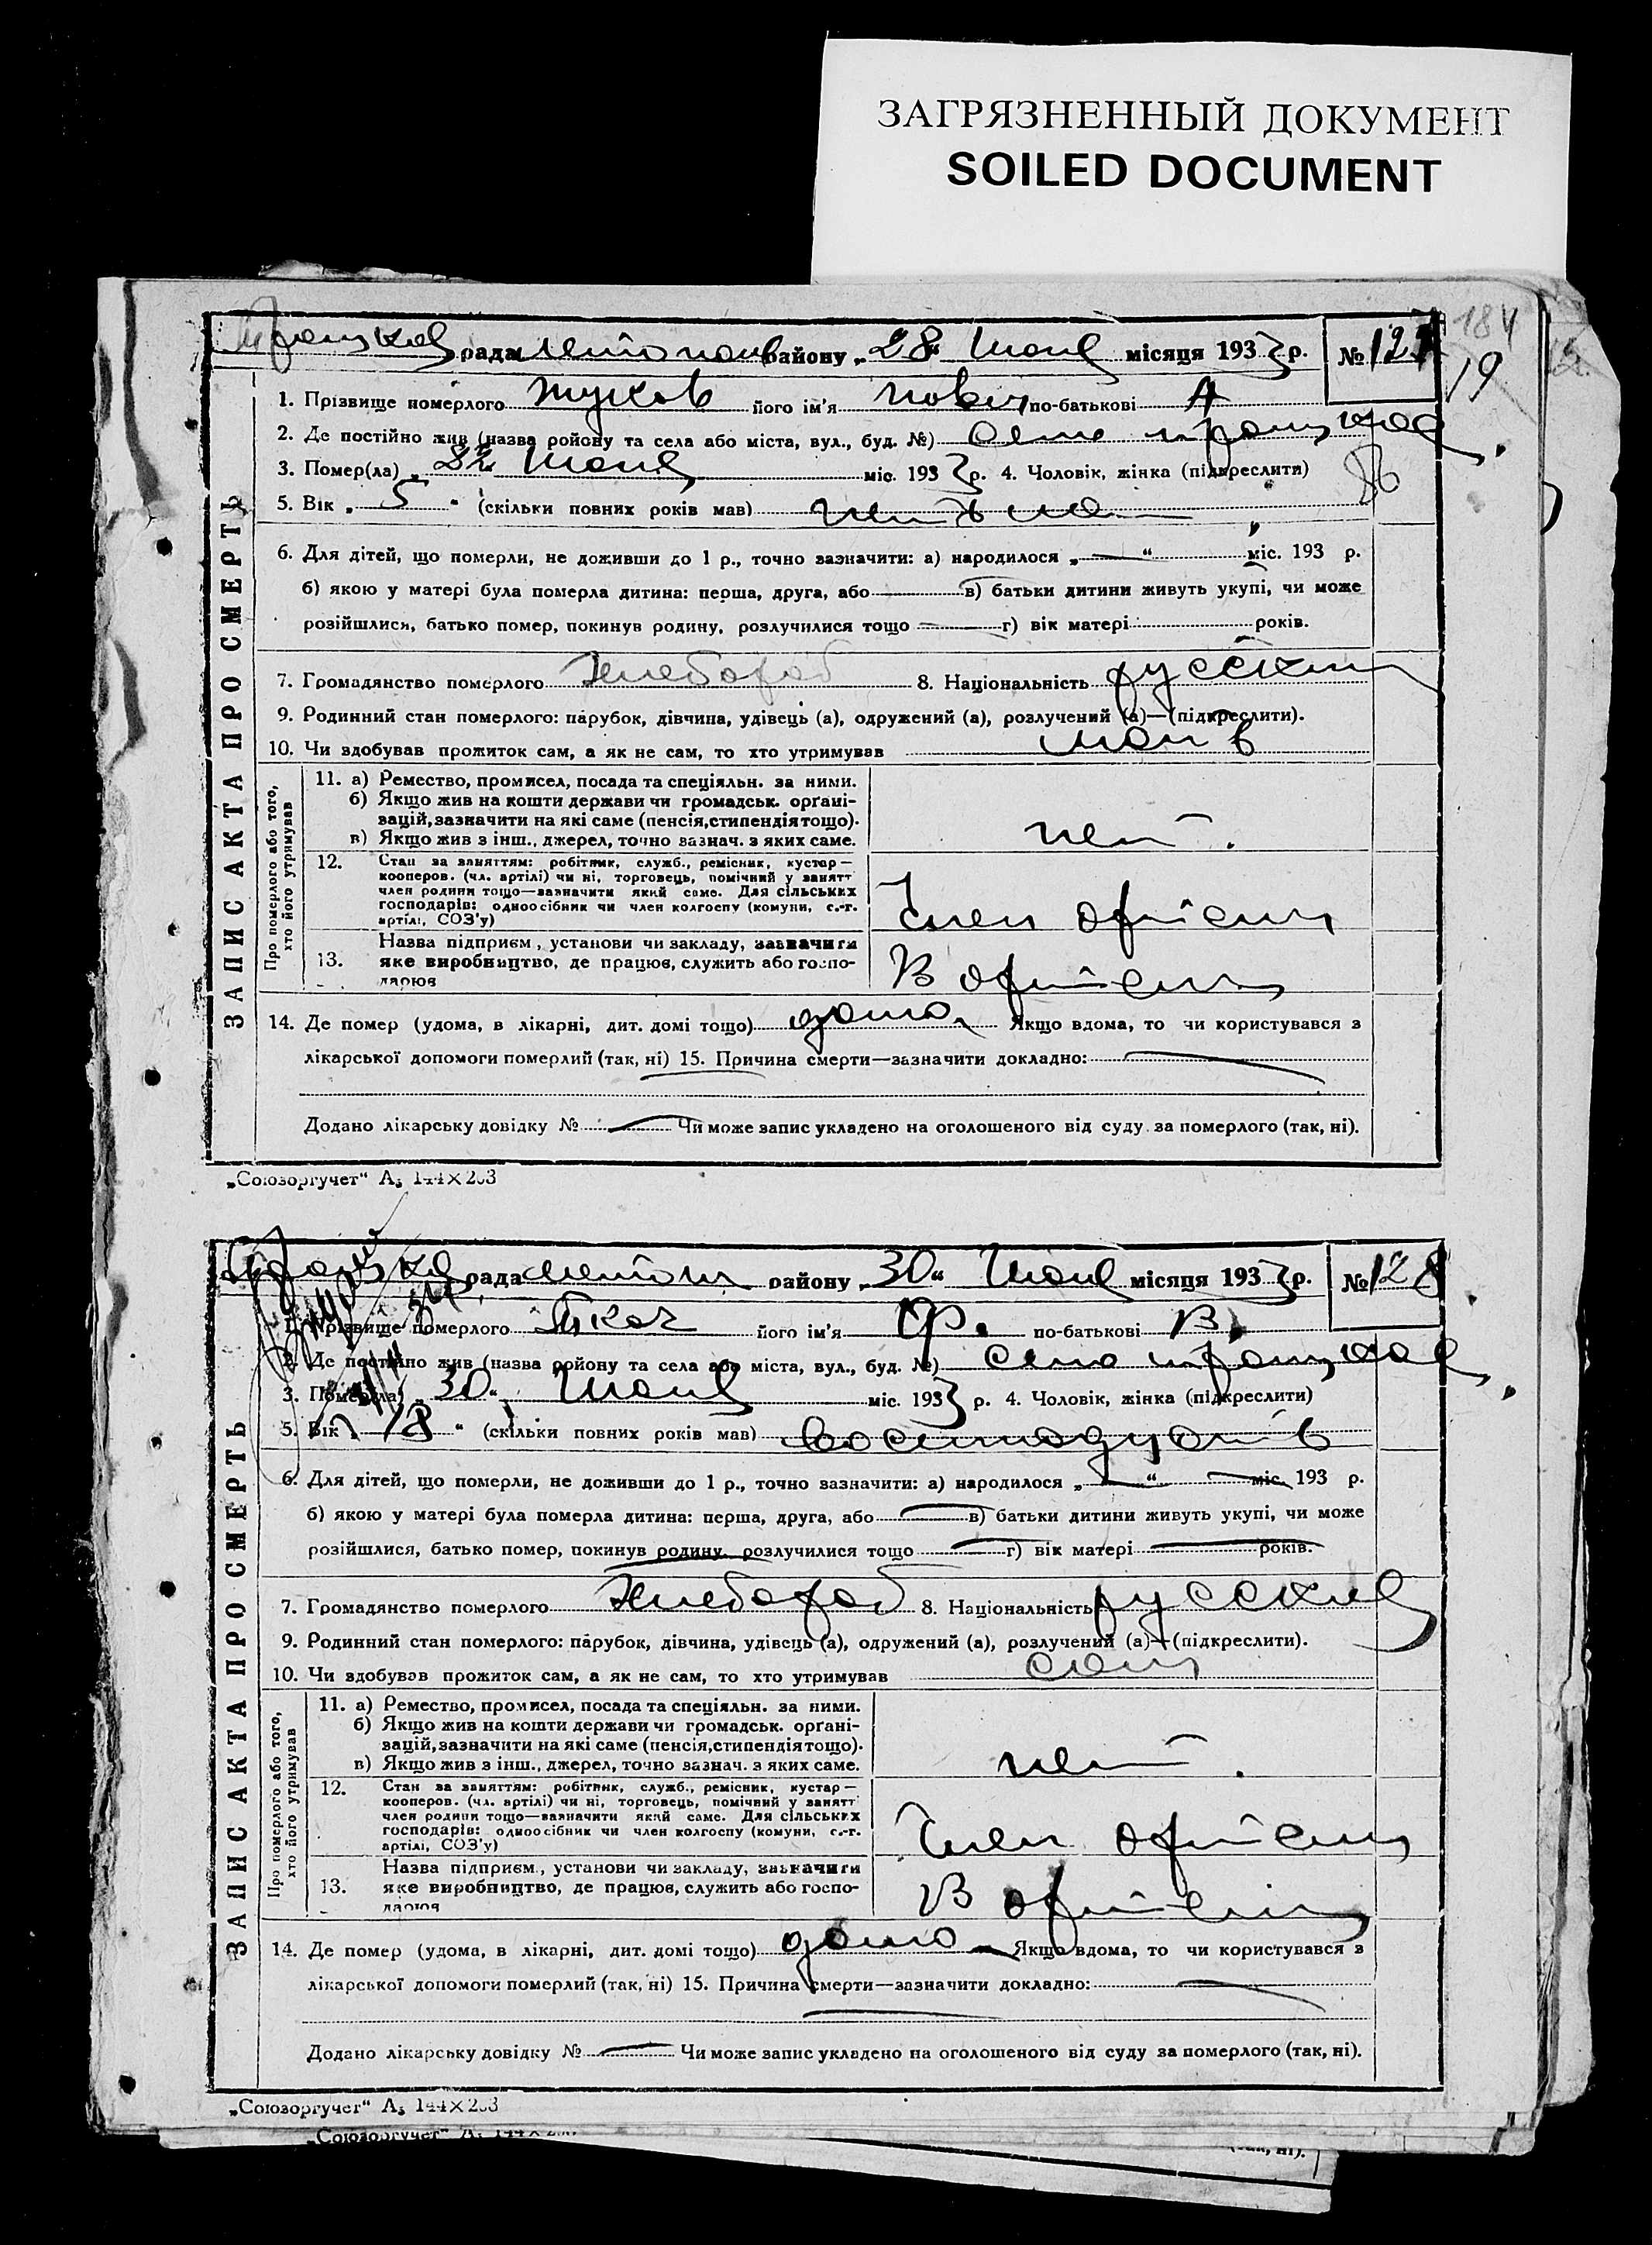 ЗАГРЯЗНЕННЫЙ ДОКУМЕНТ
SOILED DOCUMENT
184
19
рада району „28“ Июня місяця 1933 р. № 127
1. Прізвище померлого Жуков його ім'я по-батькові А
2. Де постійно жив (назва ройону та села або міста, вул., буд. №) село
3. Помер(ла) „ “ Июня міс. 1933 р. 4. Чоловік, жінка (підкреслити)
5. Вік „5“ (скільки повних років мав)
6. Для дітей, що померли, не доживши до 1 р., точно зазначити: а) народилося „—“ міс. 193 р.
б) якою у матері була померла дитина: перша, друга, або — в) батьки дитини живуть укупі, чи може
розійшлися, батько помер, покинув родину, розлучилися тощо — г) вік матері років.
7. Громадянство померлого Хлебороб 8. Національність русский
9. Родинний стан померлого: парубок, дівчина, удівець (а), одружений (а), розлучений (а)—(підкреслити).
10. Чи здобував прожиток сам, а як не сам, то хто утримував
ЗАПИС АКТА ПРО СМЕРТЬ
Про померлого або того, хто його утримував
11. а) Ремество, промисел, посада та спеціяльн. за ними.
б) Якщо жив на кошти держави чи громадськ. орґані-
зацій, зазначити на які саме (пенсія, стипендія тощо).
в) Якщо жив з інш., джерел, точно зазнач. з яких саме.
нет.
12. Стан за заняттям: робітник, служб., ремісник, кустар—
кооперов. (чл. артілі) чи ні, торговець, помічний у занятт
член родини тощо—зазначити який саме. Для сільських
господарів: одноосібник чи член колгоспу (комуни, с.-г.
артілі, СОЗ'у)
Член артели
13. Назва підприєм., установи чи закладу, зазначити
яке виробництво, де працює, служить або госпо-
дарює
В артели
14. Де помер (удома, в лікарні, дит. домі тощо) дома Якщо вдома, то чи користувався з
лікарської допомоги померлий (так, ні) 15. Причина смерти—зазначити докладно: —
Додано лікарську довідку № — Чи може запис укладено на оголошеного від суду за померлого (так, ні).
„Союзоргучет“ А₅ 144×203
рада району „30“ Июня місяця 1933 р. № 128
1. Прізвище померлого Ткач його ім'я Ф. по-батькові В.
2. Де постійно жив (назва ройону та села або міста, вул., буд. №) село
3. Помер(ла) „30“ Июня міс. 1933 р. 4. Чоловік, жінка (підкреслити)
5. Вік „18“ (скільки повних років мав)
6. Для дітей, що померли, не доживши до 1 р., точно зазначити: а) народилося „—“ — міс. 193 р.
б) якою у матері була померла дитина: перша, друга, або — в) батьки дитини живуть укупі, чи може
розійшлися, батько помер, покинув родину, розлучилися тощо — г) вік матері — років.
7. Громадянство померлого Хлебороб 8. Національність
9. Родинний стан померлого: парубок, дівчина, удівець (а), одружений (а), розлучений (а)—(підкреслити).
10. Чи здобував прожиток сам, а як не сам, то хто утримував сам
ЗАПИС АКТА ПРО СМЕРТЬ
Про померлого або того, хто його утримував
11. а) Ремество, промисел, посада та спеціяльн. за ними.
б) Якщо жив на кошти держави чи громадськ. орґані-
зацій, зазначити на які саме (пенсія, стипендія тощо).
в) Якщо жив з інш., джерел, точно зазнач. з яких саме.
нет.
12. Стан за заняттям: робітник, служб., ремісник, кустар—
кооперов. (чл. артілі) чи ні, торговець, помічний у занятт
член родини тощо—зазначити який саме. Для сільських
господарів: одноосібник чи член колгоспу (комуни, с.-г.
артілі, СОЗ'у)
Член артели
13. Назва підприєм., установи чи закладу, зазначити
яке виробництво, де працює, служить або госпо-
дарює
В артели
14. Де помер (удома, в лікарні, дит. домі тощо) дома Якщо вдома, то чи користувався з
лікарської допомоги померлий (так, ні) 15. Причина смерти—зазначити докладно: —
Додано лікарську довідку № — Чи може запис укладено на оголошеного від суду за померлого (так, ні).
„Союзоргучет“ А₅ 144×203
„Союзоргучет“